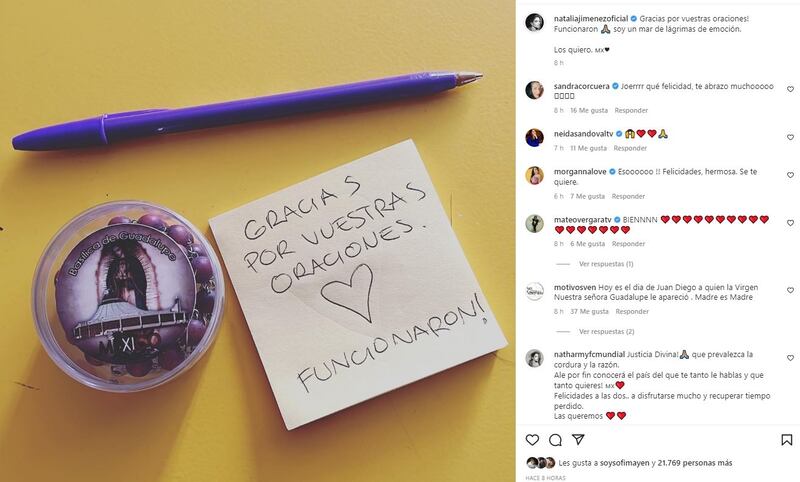 Basílica de Guadalupe
M XI
GRACIAS
POR VUESTRAS
ORACIONES.
FUNCIONARON!
nataliajimenezoficial Gracias por vuestras oraciones!
Funcionaron 🙏 soy un mar de lágrimas de emoción.
Los quiero. MX🖤
8 h
sandracorcuera Joerrrr qué felicidad, te abrazo muchooooo
▯▯▯▯
8 h 16 Me gusta Responder
neidasandovaltv 🙌❤️❤️🙏
7 h 11 Me gusta Responder
morgannalove Esoooooo !! Felicidades, hermosa. Se te
quiere.
6 h 7 Me gusta Responder
mateovergaratv BIENNNN ❤️❤️❤️❤️❤️❤️❤️❤️❤️❤️
❤️❤️❤️❤️❤️❤️❤️
8 h 6 Me gusta Responder
Ver respuestas (1)
motivosven Hoy es el dia de Juan Diego a quien la Virgen
Nuestra señora Guadalupe le apareció . Madre es Madre
8 h 37 Me gusta Responder
Ver respuestas (2)
natharmyfcmundial Justicia Divina!🙏 que prevalezca la
cordura y la razón.
Ale por fin conocerá el país del que te tanto le hablas y que
tanto quieres! MX❤️
Felicidades a las dos.. a disfrutarse mucho y recuperar tiempo
perdido.
Las queremos ❤️❤️
Les gusta a soysofimayen y 21.769 personas más
HACE 8 HORAS